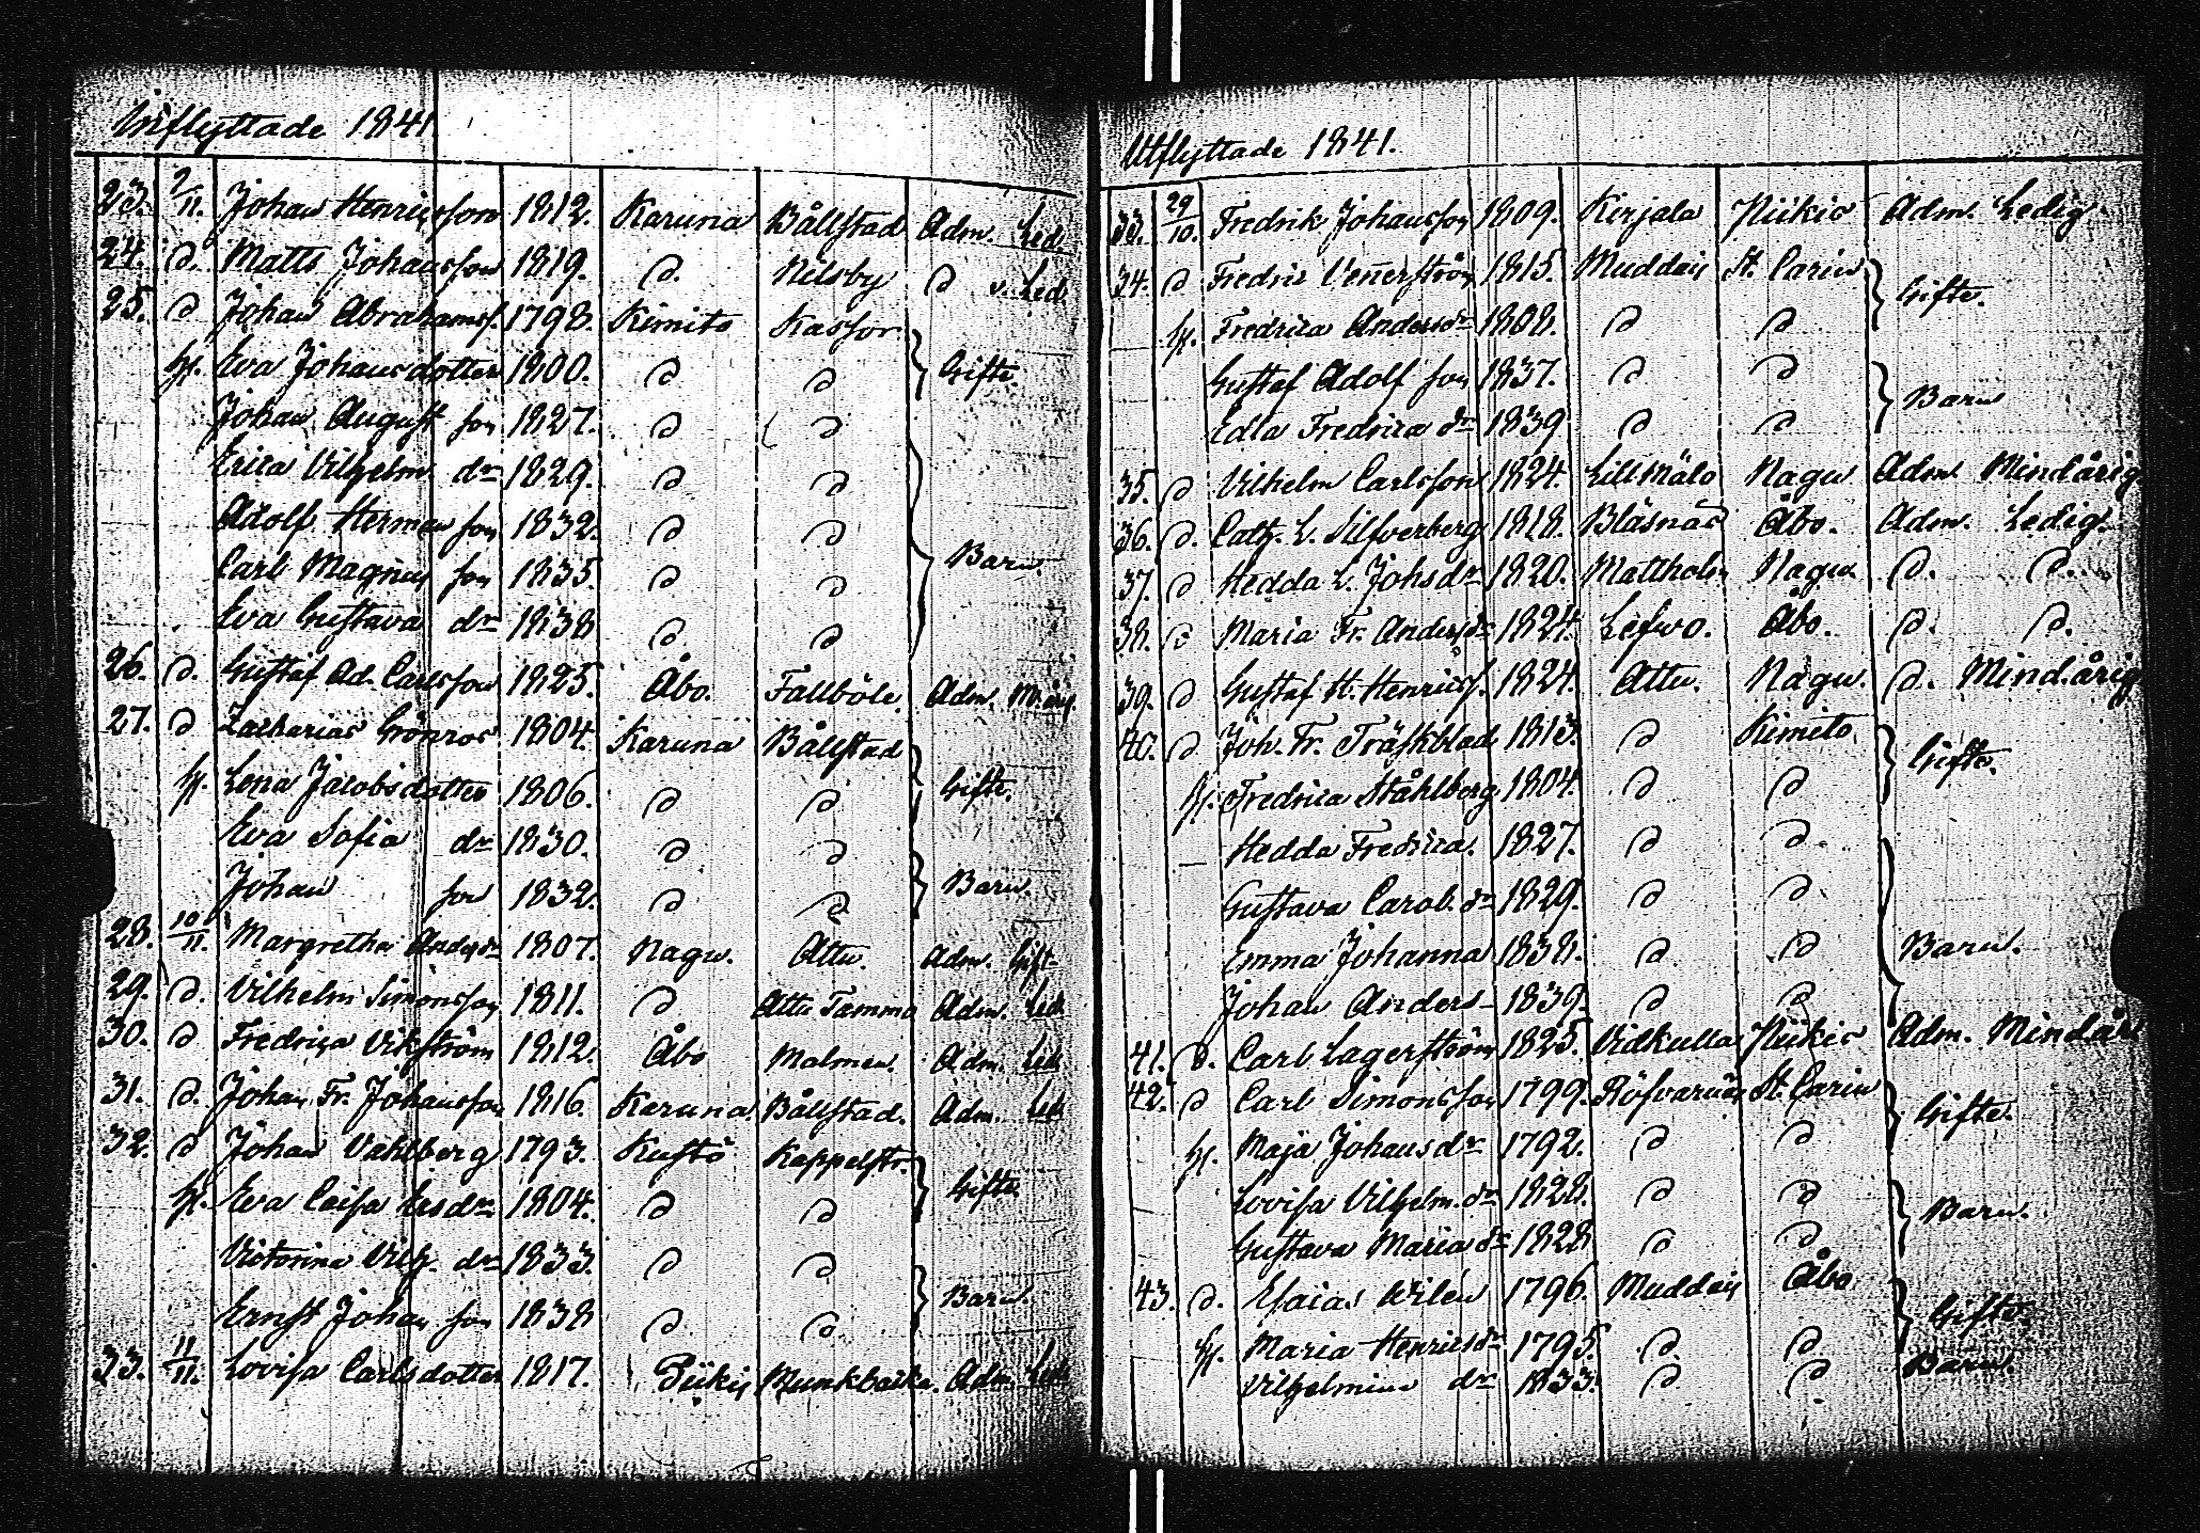 Inflyttade 1841
23. 7/11. Johan Henricsson 1812. Karuna Bållstad Adm. Led.
24. D. Matts Johansson 1819. D. Nilsby D v. Led.
25. D Johan Abrahamss. 1798. Kimito Kassor.
H. Eva Johansdotter 1800. D D Gifte.
Johan August son 1827. D D
Erica Vilhelm. dr 1829. D D
Adolf Herman son 1832. D D
Carl Magnus son 1835. D D Barn.
Eva Gustava dr 1838 D D
26. D. Gustaf Ad. Carlsson 1825. Åbo. Fallböle. Adm. M. årig.
27. D Zacharias Grönroos 1804. Karuna Bållstad
H. Lena Jacobsdotter 1806. D D Gifte.
Eva Sofia dr 1830. D D
Johan son 1832. D D Barn.
28. 10/11. Margretha Andersdr 1807. Nagu. Attu. Adm. Gift
29. D. Vilhelm Simonsson 1811. D Attu Tammo Adm. Led.
30. D Fredrica Vikström 1812. Åbo Malmen. Adm. Led.
31. D. Johan Fr. Johansson 1816. Karuna. Bållstad. Adm. Led.
32. D Johan Vahlberg 1793. Kustö Kappelstr.
H. Eva Caisa Ersdr 1804. D D Gifte.
Victorina Vilh. dr 1833. D D
Ernst Johan son 1838 D D Barn.
33. 11/11. Lovisa Carlsdotter 1817. Piikis Munkbacka. Adm. Led.
Utflyttade 1841.
33. 29/10. Fredrik Johansson 1809. Kirjala Piikis Adm. Ledig.
34. D Fredric Vennerström 1815. Muddais St. Carin
H. Fredrica Andersdr 1808. D D Gifte.
Gustaf Adolf son 1837. D D
Edla Fredrica dr 1839 D D Barn
35. D Vilhelm Carlsson 1824. Lillmälo Nagu Adm. Mindårig
36. D. Cath. L. Silfverberg 1818. Bläsnäs Åbo. Adm. Ledig.
37. D Hedda L. Johsdr 1820. Mattholm Nagu. D. D.
38. D Maria Fr. Andersdr 1824. Lefwo. Åbo. D. D.
39. D Gustaf H. Henricss. 1824. Attu. Nagu. D. Mindårig
40. D Joh. Fr. Träskblad 1813. D Kimito
H. Fredrica Ståhlberg 1804. D D Gifte.
Hedda Fredrica. 1827. D D
Gustava Carol. dr 1829. D D
Emma Johanna 1838. D. D Barn.
Johan Anders 1839. D D
41. D. Carl Lagerström 1825. Vidkulla Piikis Adm. Mindår
42. D Carl Simonsson 1799. Röfvarnäs St. Carin
H. Maja Johansdr 1792. D D Gifte.
Lovisa Vilhelm. dr 1828. D D
Gustava Maria dr 1828 D D Barn.
43. D. Esaias Wilén 1796. Muddais Åbo
H. Maria Henricsdr 1795. D. D. Gifte.
Vilhelmina dr 1833. D D Barn.